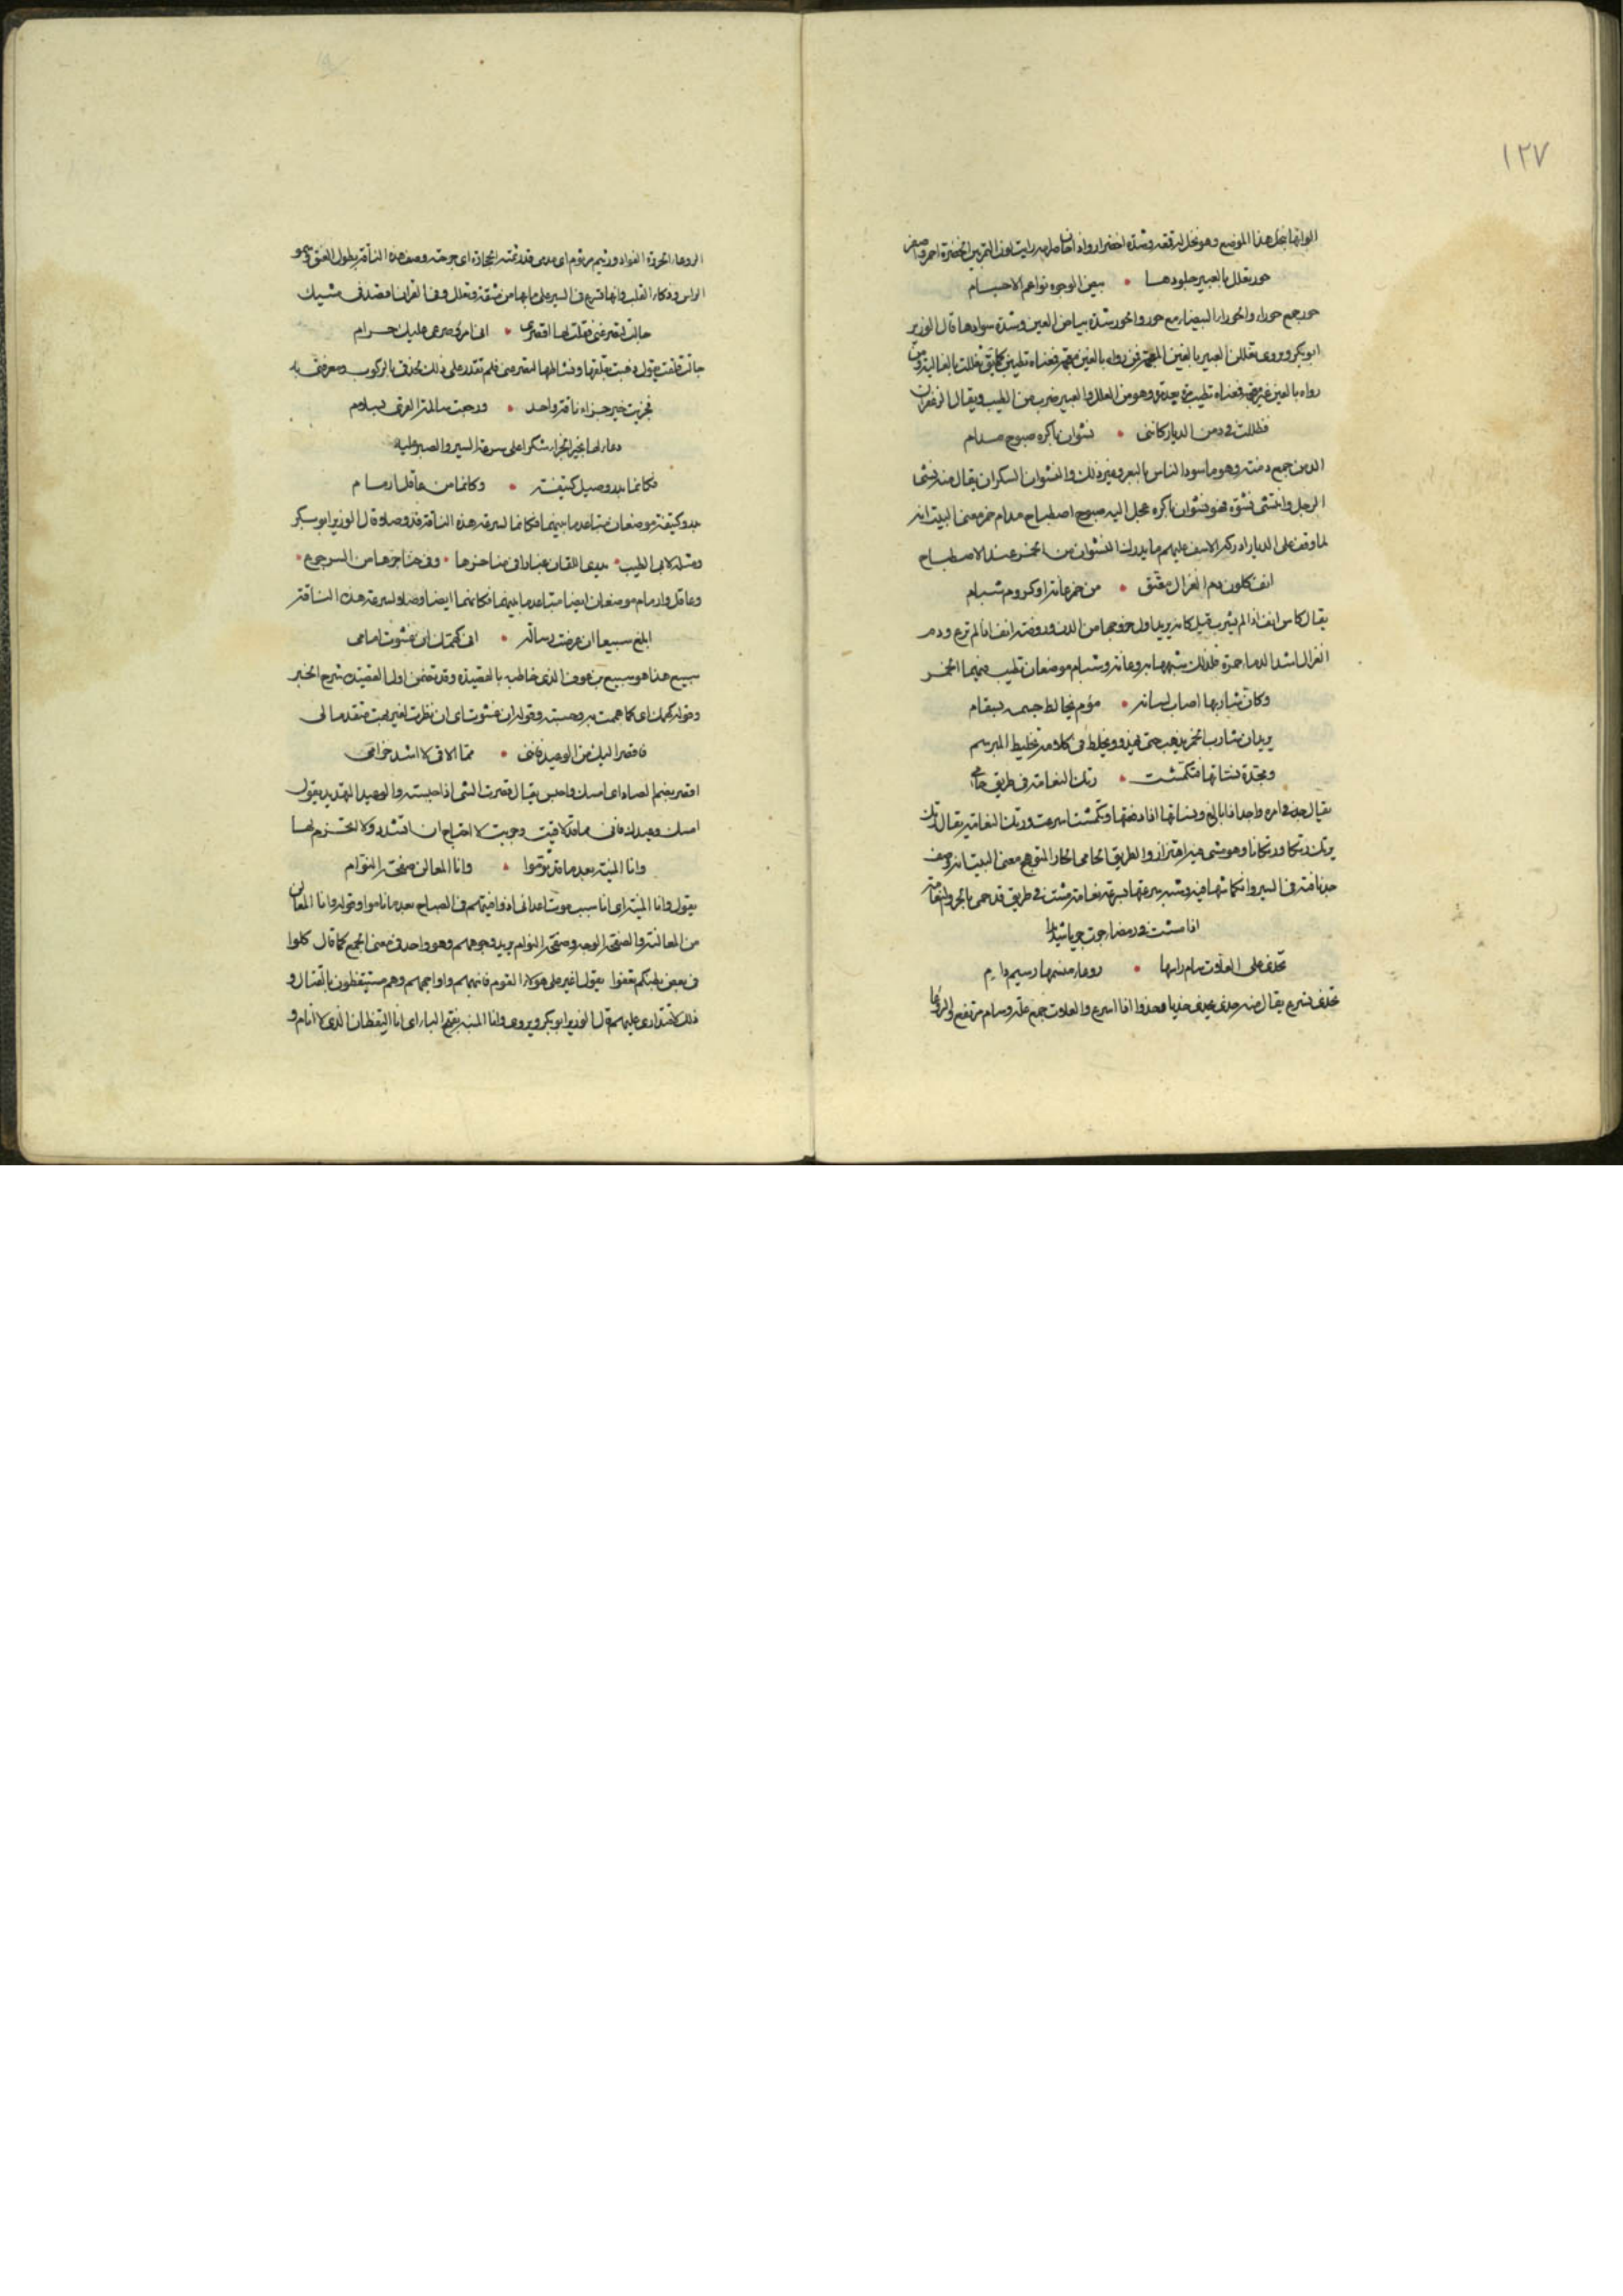 ١٢٧
الوانها نخل هذا الموضع وهو نخل ابن قعد وشدة اخضراره واذا
حور تعلل بالعبير جلودها • بيض الوجوه نواعم الاجسام
حور جمع حوراء والحوراء البيضاء مع حور والحور شدة بياض العين وشدة سوادها قال الوزير
ابو بكر ويروى تغللن العبير بالغين المعجمة فمن رواه بالغين معجمة فمعناه
رواه بالعين غير معجمة فمعناه تطيب مرة بعد مرة وهو من العلل والعبير ضرب من الطيب ويقال الزعفران
فظللت في دمن الديار كانني • نشوان باكره صبوح مدام
الدمن جمع دمنة وهو ما سود الناس بالبعر وغير ذلك والنشوان السكران يقال منه نشا
الرجل وانتشى نشوة فهو نشوان باكره عجل اليه صبوح اصطباح مدام خمر معنى البيت انه
لما وقف على الديار ادركه الاسف عليهم ما يدرك النشوان من الخمر عند الاصطباح
انف كلون دم الغزال معتق • من خمر عانة او كروم شبام
يقال كاس انف اذا لم يشرب قبل كانه يريد اول خروجها من الدن وروضة انف اذا لم ترع ودم
الغزال اشد الدماء حمرة فلذلك شبهها به وعانة وشبام موضعان تطيب فيهما الخمر
وكان شاربها اصاب لسانه • موم يخالط جسمه بسقام
يريد ان شارب الخمر يذهب حتى يهذو ويخلط في كلامه تخليط المبرسم
ومجدة نساتها فتكمشت • رتك النعامة في طريق حامي
يقال جد في امره واجد اذا بالغ ونساتها اذا دفعتها وتكمشت اسرعت ورتك النعامة يقال رتك
يرتك رتكا ورتكانا وهو مشي فيه اهتزاز والطريق الحامي الحار المتوهج معنى البيت انه وصف
جد ناقته في السير وانكماشها فيه وشبه سرعتها بسرعة نعامة مشت في طريق قد حمي بالحر والنعامة
اذا مشت في رمضاء
تخدي على العلات سام راسها • روعاء منسمها رثيم دام
تخدي تسرع يقال منه خدى يخدي خديا وخدوا اذا اسرع والعلات جمع علة وسام مرتفع
الروعاء الحديدة الفؤاد ورثيم مرثوم اي مدمى قد رثمته الحجارة اي جرحته وصف هذه الناقة بطول العنق وسمو
الراس وذكاء القلب وانها تسرع في السير على ما بها من مشقة وتعلل وفي القران واقصد في مشيك
جالت لتصرعني فقلت لها اقصري • اني امرؤ صرعي عليك حرام
جالت قلقت يقول ذهبت بقلقها ونشاطها لتصرعني فلم تقدر على ذلك لحذقي بالركوب ومعرفتي به
فجزيت خير جزاء ناقة واحد • ورجعت سالمة القرى بسلام
دعاء لها بخير الجزاء شكرا على سرعة السير والصبر عليه
فكانما بدر وصيل كتيفة • وكانما من عاقل ارمام
بدر وكتيفة موضعان متباعد ما بينهما فكانما لسرعة هذه الناقة قد وصلا قال الوزير ابو بكر
ومثله لابي الطيب • يذري اللقان غبارا في مناخرها • وفي حناجرها من السرجوع •
وعاقل وارمام موضعان ايضا متباعد ما بينهما فكانهما ايضا وصلا لسرعة هذه الناقة
ابلغ سبيعا ان عرضت رسالة • اني كهمك ان عشوت امامي
سبيع هذا هو سبيع بن عوف الذي خاطبه بالقصيدة وقد تضمن اول القصيدة شرح الخبر
وقوله كهمك اي كما هممت به وحسبته وقوله ان عشوت اي ان نظرت
فاقصر اليك من الوعيد فانني • مما الاقي لا اشد حزامي
اقصر بضم الصاد اي امسك واحبس يقال قصرت الشي اذا حبسته والوعيد التهديد يقول
امسك وعيدك فاني مما قد لاقيت وجربت لا احتاج ان اتشدد ولا اتحزم لها
وانا المنية بعد ما قد نوموا • وانا المعالن صفحة النوام
يقول وانا المنية اي انا سبب موت اعدائي اذا وافيتهم في الصباح بعد ما ناموا وقوله وانا المعالن
من المعالنة والصفحة الوجه وصفحة النوام يريد وجوههم وهو واحد في معنى الجمع كما قال كلوا
في بعض بطنكم تعفوا يقول اغير على هولاء القوم فانبههم واواجههم وهم مستيقظون بالقتال و
ذلك لاقتداري عليهم قال الوزير ابو بكر ويروى وانا المنبه بفتح الباء اي انا اليقظان الذي لا انام و